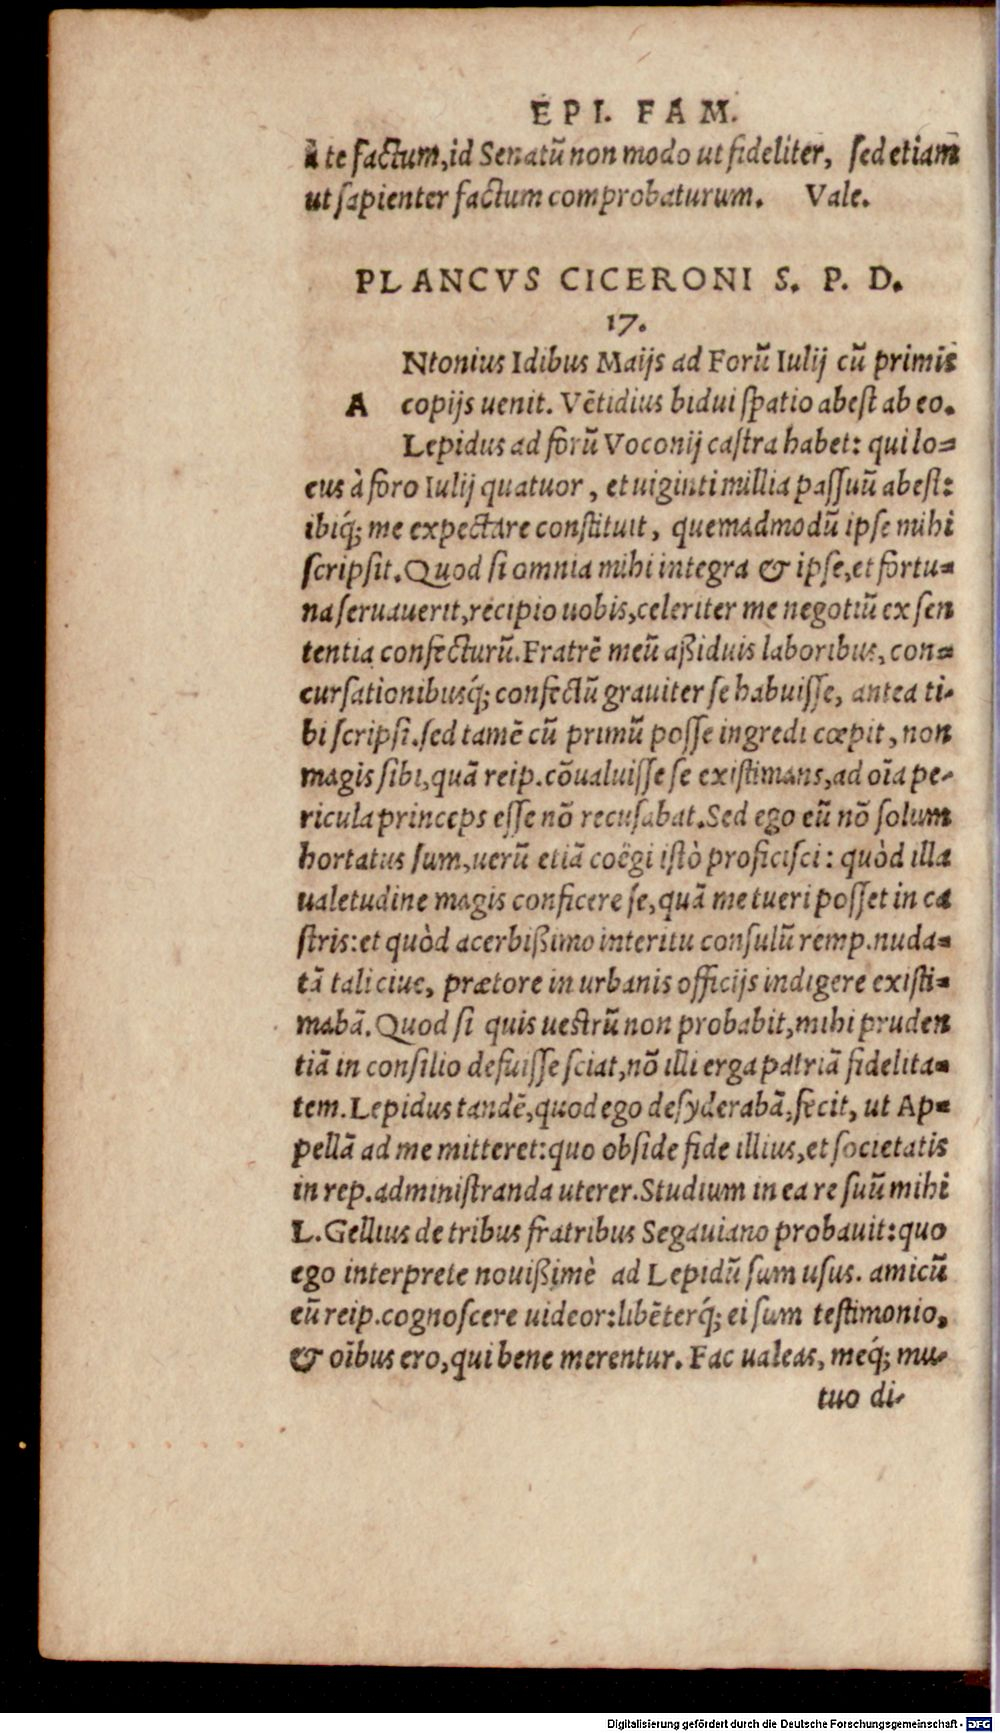 EPI. FAM.
à te factum, id Senatũ non modo ut fideliter, sed etiam
ut sapienter factum comprobaturum. Vale.
PLANCVS CICERONI S. P. D.
17.
Ntonius Idibus Maijs ad Forũ Iulij cũ primis
A copijs uenit. Vẽtidius bidui spatio abest ab eo.
Lepidus ad forũ Voconij castra habet: qui lo-
cus à foro Iulij quatuor, et uiginti millia passuũ abest:
ibiq́; me expectare constituit, quemadmodũ ipse mihi
scripsit. Quod si omnia mihi integra & ipse, et fortu-
na seruauerit, recipio uobis, celeriter me negotiũ ex sen
tentia confecturũ. Fratrẽ meũ aßiduis laboribus, con-
cursationibusq́; confectũ grauiter se habuisse, antea ti-
bi scripsi. sed tamẽ cũ primũ posse ingredi cœpit, non
magis sibi, quã reip. cõualuisse se existimans, ad oĩa pe-
ricula princeps esse nõ recusabat. Sed ego eũ nõ solum
hortatus sum, uerũ etiã coëgi istò proficisci: quòd illa
ualetudine magis conficere se, quã me tueri posset in ca
stris: et quòd acerbißimo interitu consulũ remp. nuda-
tã tali ciue, prætore in urbanis officijs indigere existi-
mabã. Quod si quis uestrũ non probabit, mihi pruden
tiã in consilio defuisse sciat, nõ illi erga patriã fidelita-
tem. Lepidus tandẽ, quod ego desyderabã, fecit, ut Ap-
pellã ad me mitteret: quo obside fide illius, et societatis
in rep. administranda uterer. Studium in ea re suũ mihi
L. Gellius de tribus fratribus Segauiano probauit: quo
ego interprete nouißimè ad Lepidũ sum usus. amicũ
eũ reip. cognoscere uideor: libẽterq́; ei sum testimonio,
& oĩbus ero, qui bene merentur. Fac ualeas, meq́; mu-
tuo di-
Digitalisierung gefördert durch die Deutsche Forschungsgemeinschaft - DFG